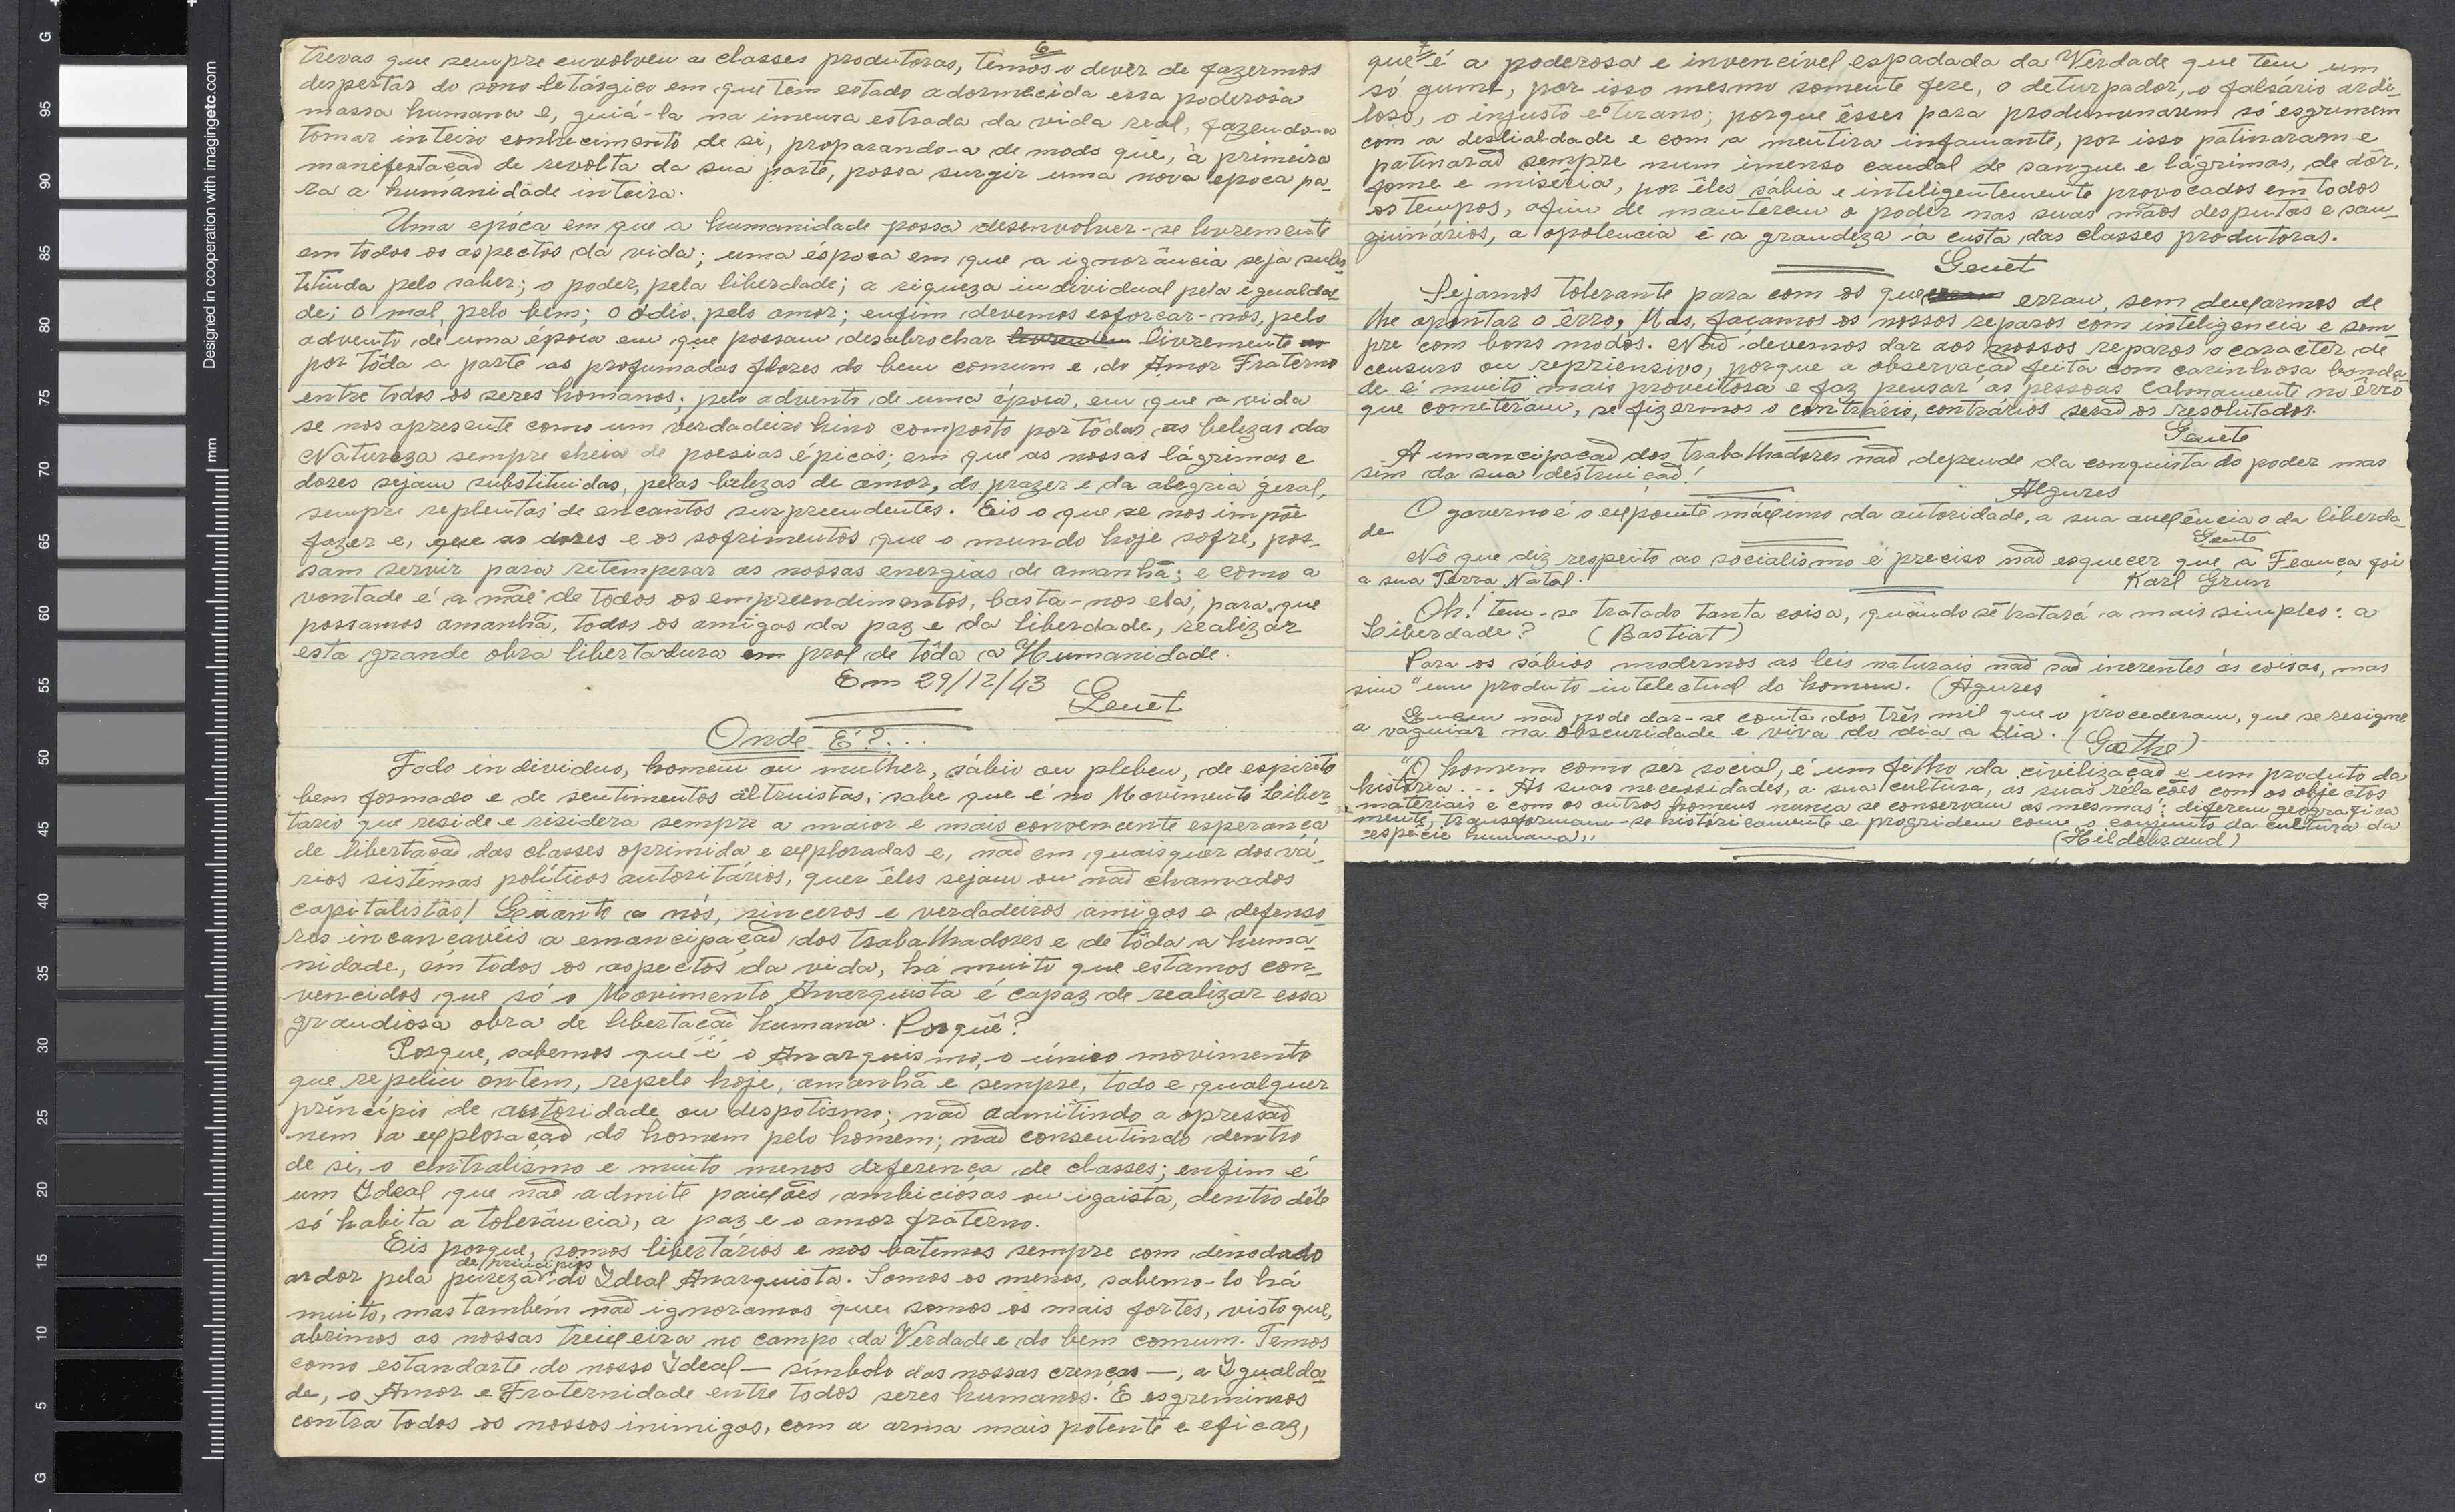 6
trevas que sempre envolveu a classes produtoras, temos o dever de fazermos
despertar do sono letásgico em que tem estado adormecida essa poderosa
massa humana e, guiá-la na imensa estrada da vida real, fazendo-a
tomar inteiro conhecimento de si, proparando-a de modo que, à primeira
manifestação de revolta da sua parte, possa surgir uma nova época pa-
ra a humanidade inteira.
Uma epóca em que a humanidade possa desenvolver-se livremente
em todos os aspectos da vida; uma éspoca em que a ignorância seja subs-
tituida pelo saber; o poder, pela liberdade; a riqueza individual pela igualda-
de; o mal, pelo bem; o ódio, pelo amor; enfim devemos esforcar-nos, pelo
advento de uma época em que possam desabrochar livremente
por tôda a parte as profumadas flores do bem comum e do Amor Fraterno
entre todos os seres homanos; pelo advento de uma época, em que a vida
se nos apresente como um verdadeiro hino composto por tôdas as belezas da
Natureza sempre cheia de poesias épicas; em que as nossas lágrimas e
dores sejam substituidas, pelas belezas de amor, do prazer e da alegria geral,
sempre replentas de encantos surpreendentes. Eis o que se nos impõe
fazer e, que as dores e os sofrimentos que o mundo hoje sofre, pos-
sam servir para retemperar as nossas energias de amanhã; e como a
vontade é a mãe de todos os empreendimentos, basta-nos ela, para que
possamos amanhã, todos os amigos da paz e da liberdade, realizar
esta grande obra libertadura em prol de tôda a Humanidade.
Em 29/12/43
Genet
Onde É?...
Todo individuo, homem ou mulher, sábio ou plebeu, de espirito
bem formado e de sentimentos altruistas, sabe que é no Movimento Liber-
tário que reside e residera sempre a maior e mais convencente esperança
de libertação das classes oprimida e exploradas e, não em quaisquer dos vá-
rios sistemas políticos autoritários, quer êles sejam ou não chamados
capitalistas! Quanto a nós, sinceros e verdadeiros amigos e defenso-
res incançavéis a emancipação dos trabalhadores e de tôda a huma-
nidade, em todos os aspectos da vida, há muito que estamos con-
vencidos que só o Movimento Anarquista é capaz de realizar essa
grandiosa obra de libertação humana. Porquê?
Porque, sabemos que é o Anarquismo, o único movimento
que repeliu ontem, repele hoje, amanhã e sempre, todo e qualquer
príncipio de autoridade ou despotismo; não admitindo a opressão
nem a exploração do homem pelo homem; não consentindo dentro
de si, o centralismo e muito menos diferença de classes; enfim é
um Ideal que não admite paixões ambiciosas ou igaista, dentro dêle
só habita a tolerância, a paz e o amor fraterno.
Eis porque, somos libertários e nos batemos sempre com denodado
de principios
ardor pela pureza do Ideal Anarquista. Somos os menos, sabemo-lo há
muito, mas também não ignoramos que somos os mais fortes, visto que,
abrimos as nossas treixeira no campo da Verdade e do bem comum. Temos
como estandarte do nosso Ideal — símbolo das nossas crenças —, a Igualda-
de, o Amor e Fraternidade entre todos seres humanos. E esgremimos
contra todos os nossos inimigos, com a arma mais potente e eficaz,
7
que é a poderosa e invencível espadada da Verdade que tem um
só gume, por isso mesmo somente fere, o deturpador, o falsário ardi-
loso, o injusto e o tirano; porque êsses para predominarem só esgrimem
com a deslialdade e com a mentira infamante, por isso patinaram e
patinarão sempre num imenso caudal de sangue e lágrimas, de dôr,
fome e miséria, por êles sábia e inteligentemente provocados em todos
os tempos, afim de manterem o poder nas suas mãos desputas e san-
guinários, a opolencia e a grandeza à custa das classes produtoras.
Genet
Sejamos tolerante para com os que erram, sem deixarmos de
lhe apontar o êrro, Mas, façamos os nossos reparos com inteligencia e sem
pre com bons modos. Não devemos dar aos nossos reparos o caracter de
censura ou repriensivo, porque a observação feita com carinhosa bonda-
de é muito mais proveitosa e faz pensar as pessoas calmamente no êrro
que cometeram, se fizermos o contrário, contrários serão os resolutados.
Genete
A imancipação dos trabalhadores não depende da conquista do poder mas
sim da sua destruição!
Algures
O governo é o expoente máximo da autoridade, a sua auxência o da liberda-
de
Genete
No que diz respeito ao socialismo é preciso não esquecer que a França foi
a sua Terra Natal.
Karl Grun
Oh! tem-se tratado tanta coisa, quando se tratará a mais simples: a
Liberdade? (Bastiat)
Para os sábios modernos as leis naturais não são inerentes às coisas, mas
sim "um produto intelectual do homem. (Agures
Quem não pode dar-se conta dos três mil que o procederam, que se resigne
a vaguiar na obscuridade e viva do dia a dia. (Goethe)
"O homem como ser social, é um filho da civilização e um produto da
história... As suas necessidades, a sua cultura, as suas relações com os objectos
materiais e com os outros homens nunca se conservam as mesmas: diferem geografica
mente, transformam-se históricamente e progridem com o conjunto da cultura da
espécie humana"
(Hildebrand)
G
95
90
85
80
75
70
65
60
55
50
45
40
35
30
25
20
15
10
5
G
mm
Designed in cooperation with imagingetc.com